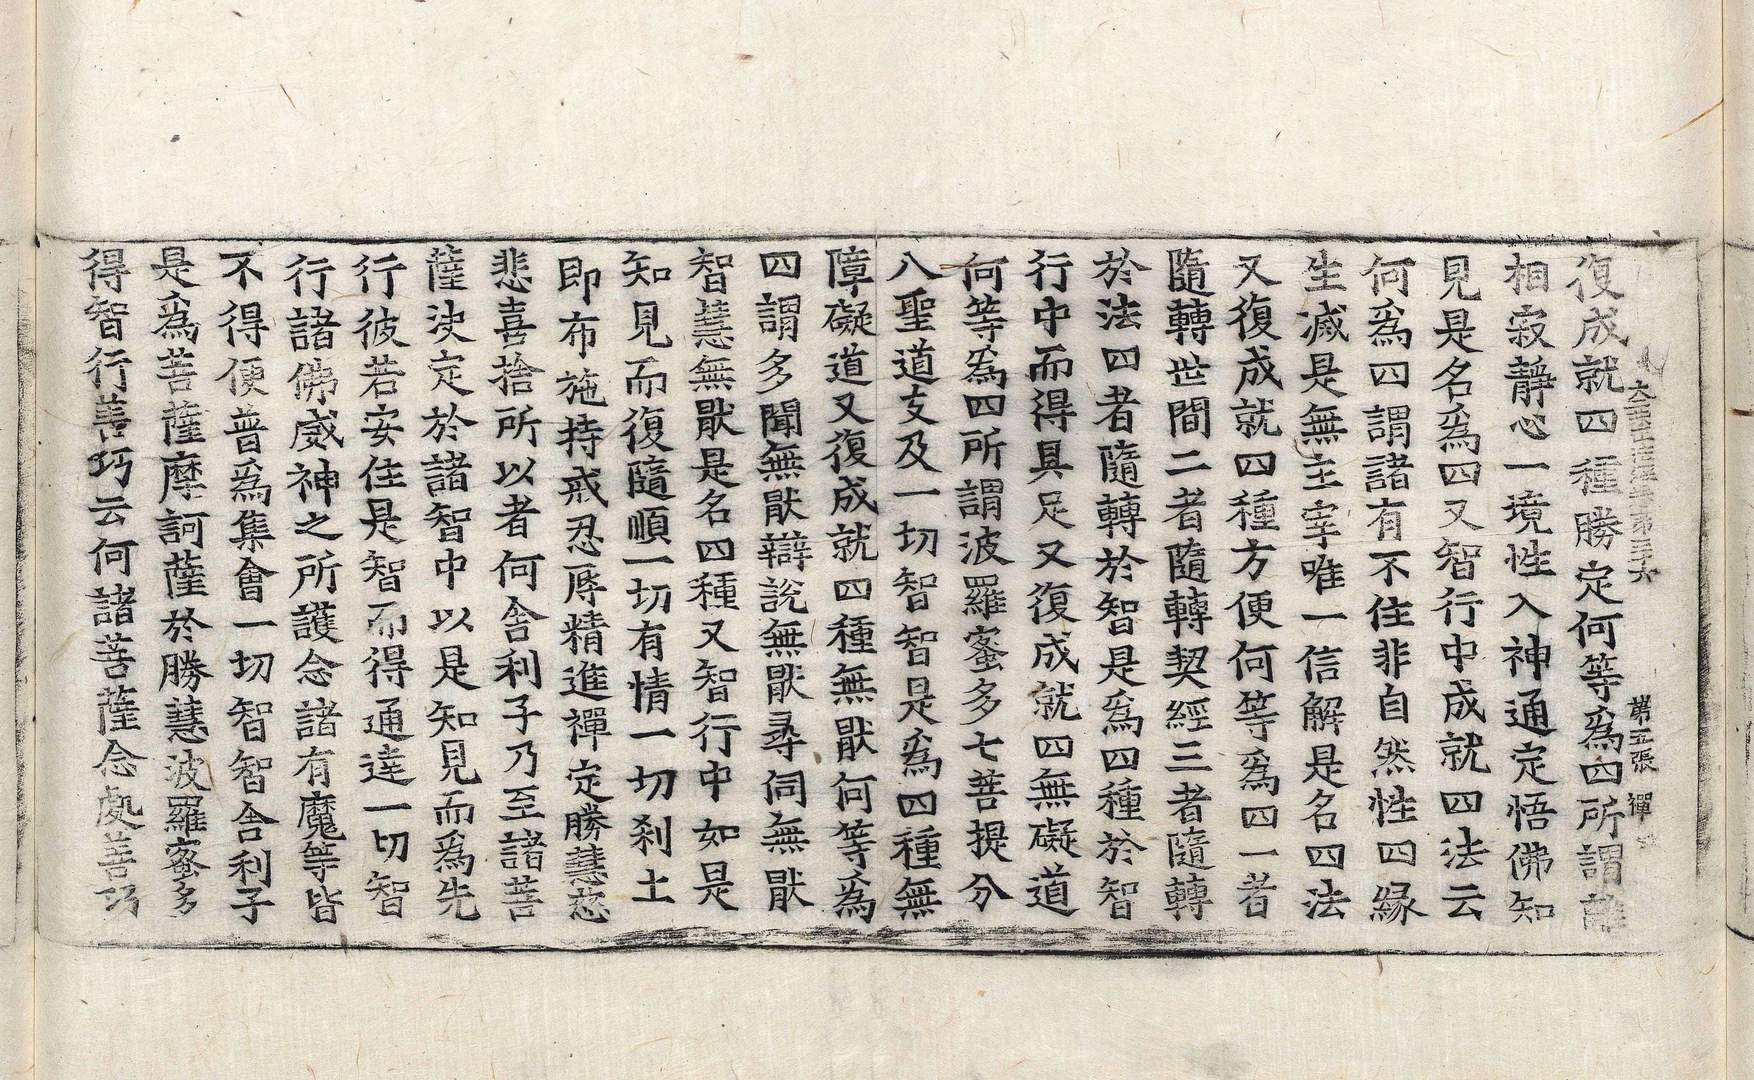 復成就四種勝定何等爲四所謂離
相寂靜心一境性入神通定悟佛知
見是名爲四又智行中成就四法云
何爲四謂諸有不住非自然性四緣
生滅是無主宰唯一信解是名四法
又復成就四種方便何等爲四一者
隨轉世間二者隨轉契經三者隨轉
於法四者隨轉於智是爲四種於智
行中而得具足又復成就四無礙道
何等爲四所謂波羅蜜多七菩提分
八聖道支及一切智智是爲四種無
障礙道又復成就四種無猒何等爲
四謂多聞無猒辯說無猒尋伺無猒
智慧無猒是名四種又智行中如是
知見而復隨順一切有情一切剎土
即布施持戒忍辱精進禪定勝慧慈
悲喜捨所以者何舍利子乃至諸菩
薩決定於諸智中以是知見而爲先
行彼若安住是智而得通達一切智
行諸佛威神之所護念諸有魔等皆
不得便普爲集會一切智智舍利子
是爲菩薩摩訶薩於勝慧波羅蜜多
得智行善巧云何諸菩薩念處善巧
第五張 禪